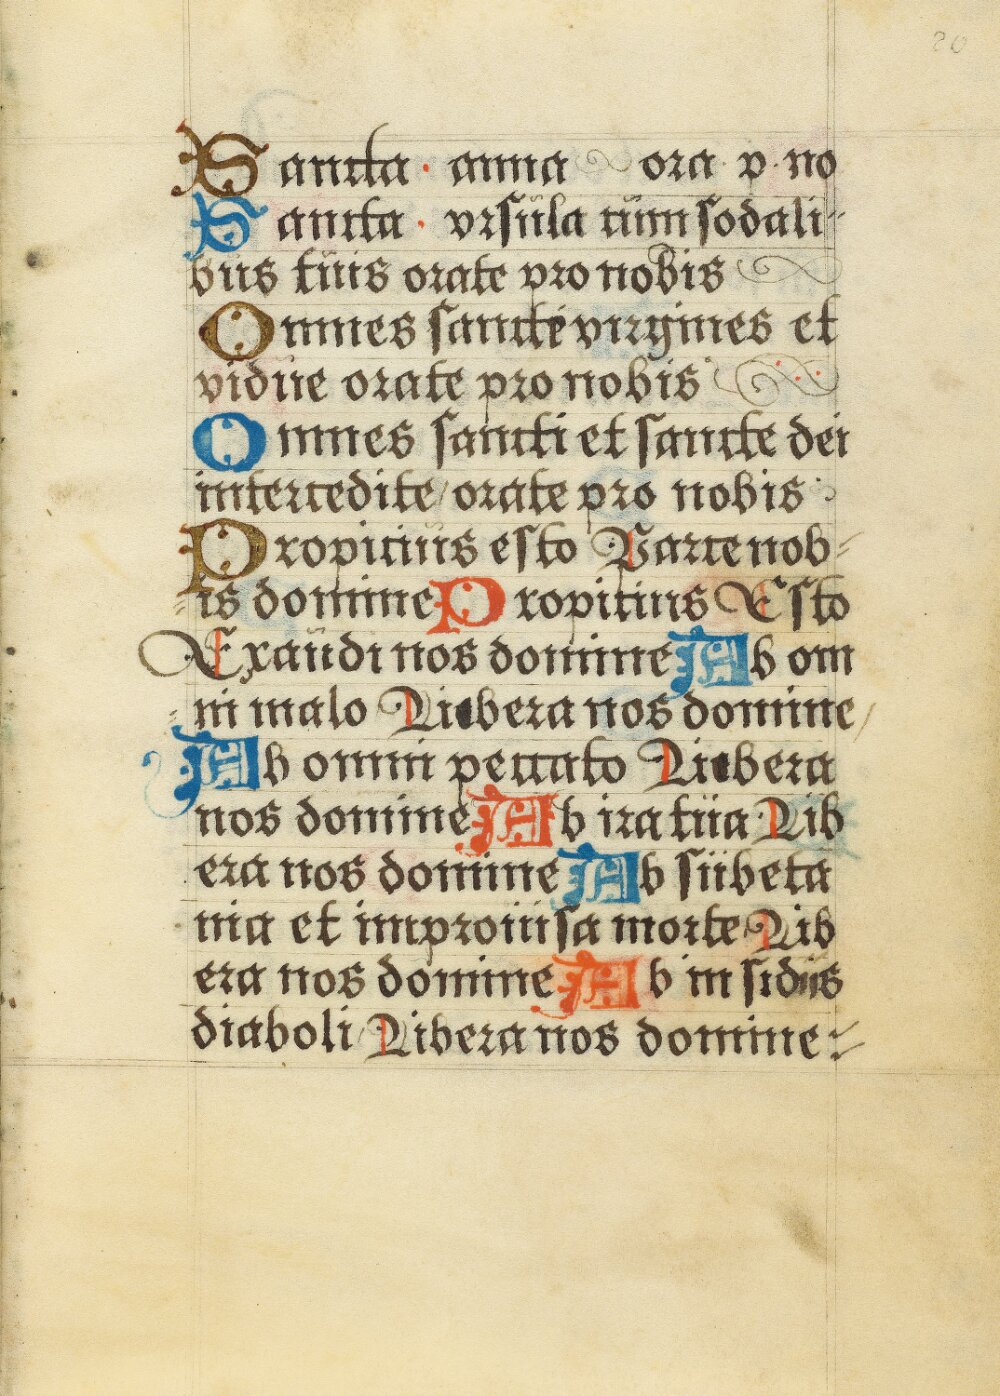 20
Sancta · anna ora p · no
Sancta · vrsŭla cŭm sodali-
bŭs tŭis orate pro nobis
Omnes sancte virgines et
vidŭe orate pro nobis
Omnes sancti et sancte dei
intercedite / orate pro nobis :
Propiciŭs esto Parce nob-
is domine Propitius Esto
Exaŭdi nos domine Ab om
ni malo Libera nos domine /
Ab omni peccato Libera
nos domine Ab ira tŭa Lib
era nos domine Ab sŭbeta
nia et improŭisa morte Lib
era nos domine Ab in sidijs
diaboli Libera nos domine :